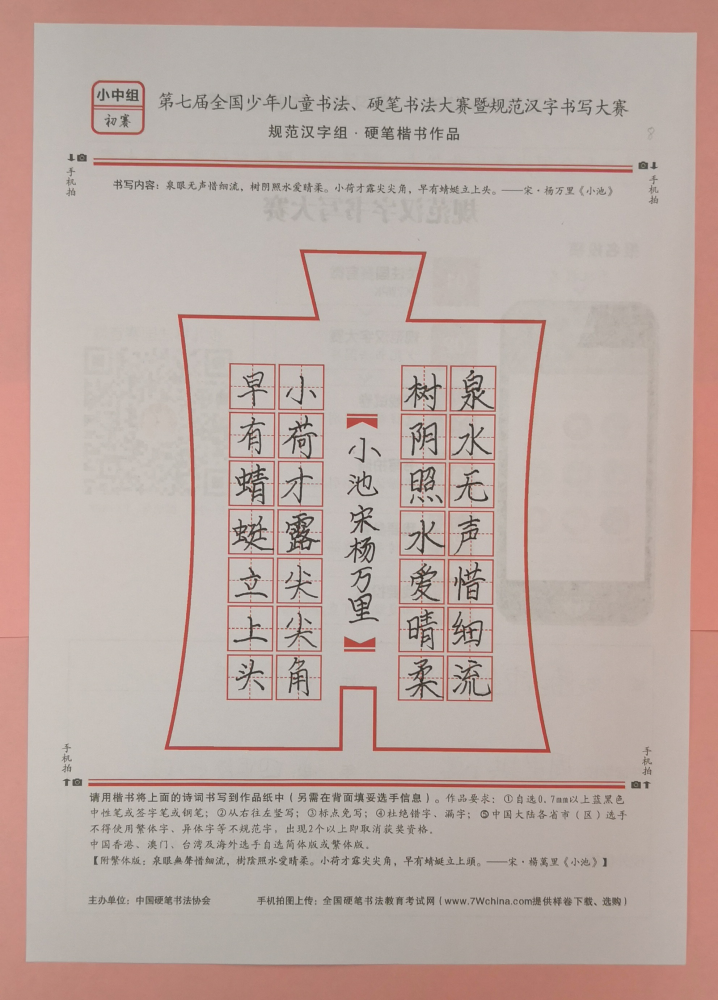 小中组
初赛
第七届全国少年儿童书法、硬笔书法大赛暨规范汉字书写大赛
规范汉字组·硬笔楷书作品
8
手机拍
手机拍
书写内容：泉眼无声惜细流，树阴照水爱晴柔。小荷才露尖尖角，早有蜻蜓立上头。——宋·杨万里《小池》
泉水无声惜细流
树阴照水爱晴柔
小池宋杨万里
小荷才露尖尖角
早有蜻蜓立上头
手机拍
手机拍
请用楷书将上面的诗词书写到作品纸中（另需在背面填妥选手信息）。作品要求：①自选0.7mm以上蓝黑色
中性笔或签字笔或钢笔；②从右往左竖写；③标点免写；④杜绝错字、漏字；⑤中国大陆各省市（区）选手
不得使用繁体字、异体字等不规范字，出现2个以上即取消获奖资格。
中国香港、澳门、台湾及海外选手自选简体版或繁体版。
【附繁体版：泉眼無聲惜細流，樹陰照水愛晴柔。小荷才露尖尖角，早有蜻蜓立上頭。——宋·楊萬里《小池》】
主办单位：中国硬笔书法协会
手机拍图上传：全国硬笔书法教育考试网（www.7Wchina.com提供样卷下载、选购）